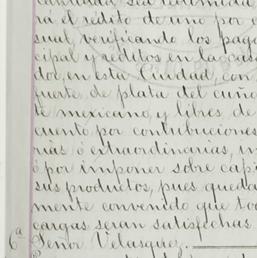 cantidad, sea redimida
rá el rédito de uno por c
sual, verificando los pago
cipal y réditos en la casa
dor, en esta Ciudad, con
uerte de plata del cuño
te mexicano, y libres de
cuento por contribuciones
rias ó extraordinarias, im
ó por imponer sobre capi
sus productos, pues queda
mente convenido que tod
cargas seran satisfechas
6ª Señor Velasque.